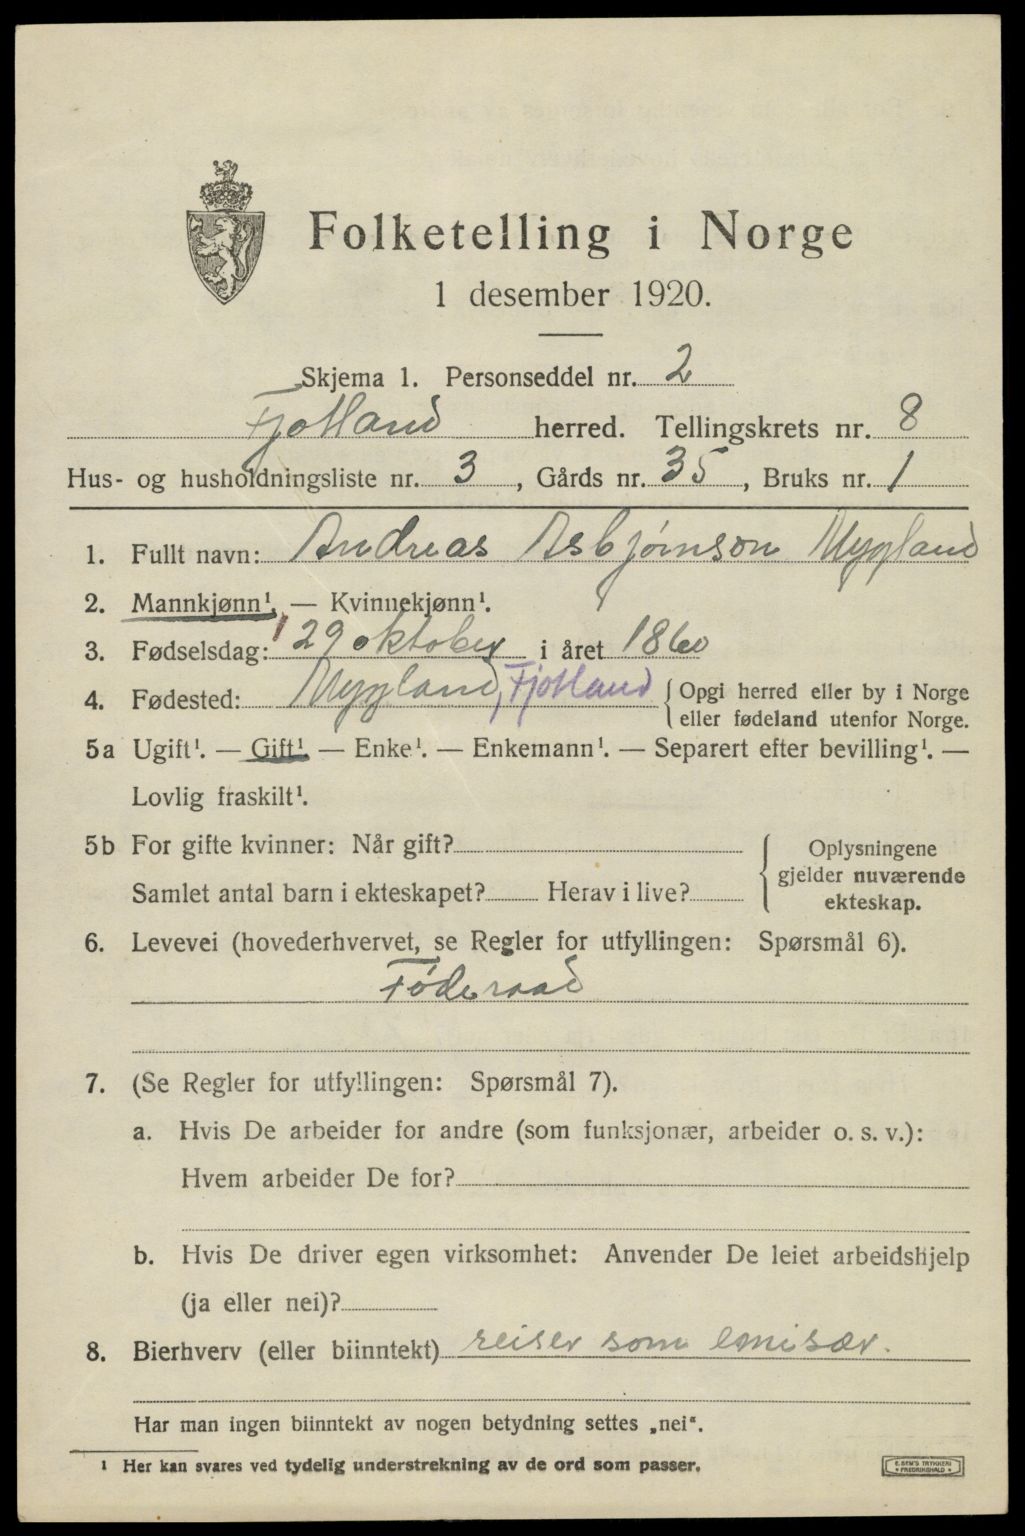 Folketelling i Norge
1 desember 1920.
Skjema 1. Personseddel nr. 2
Fjotland herred. Tellingskrets nr. 8
Hus- og husholdningsliste nr. 3, Gårds nr. 35, Bruks nr. 1
1. Fullt navn: Andreas Asbjørnson Mygland
2. Mannkjønn¹. — Kvinnekjønn¹.
3. Fødselsdag: 29 oktober i året 1860
4. Fødested: Mygland, Fjotland {Opgi herred eller by i Norge
eller fødeland utenfor Norge.
5a Ugift¹. — Gift¹. — Enke¹. — Enkemann¹. — Separert efter bevilling¹. —
Lovlig fraskilt¹.
5b For gifte kvinner: Når gift? Oplysningene
gjelder nuværende
Samlet antal barn i ekteskapet? Herav i live? ekteskap.
6. Levevei (hovederhvervet, se Regler for utfyllingen: Spørsmål 6).
Føderaad
7. (Se Regler for utfyllingen: Spørsmål 7).
a. Hvis De arbeider for andre (som funksjonær, arbeider o. s. v.):
Hvem arbeider De for?
b. Hvis De driver egen virksomhet: Anvender De leiet arbeidshjelp
(ja eller nei)?
8. Bierhverv (eller biinntekt) reiser som emisær.
Har man ingen biinntekt av nogen betydning settes „nei“.
¹ Her kan svares ved tydelig understrekning av de ord som passer.
E. SEM'S TRYKKERI
FREDRIKSHALD